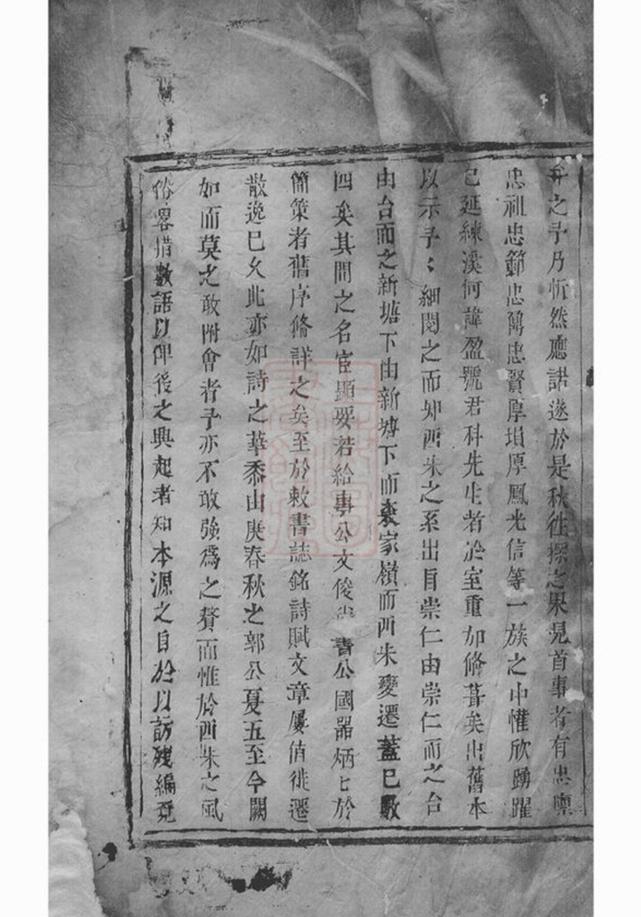 弁之予乃忻然應諾遂於是秋徃探之果見首事者有忠
忠祖忠節忠萬忠賢厚塤厚鳳光信等一族之中懽欣踴躍
已延練溪何諱盈號君科先生者於室重加脩葺矣出舊本
以示予〻細閱之而知西朱之系出自崇仁由崇仁而之台
由台而之新塘下由新塘下而袁家嶺而西朱變遷蓋已數
四矣其間之名宦顯要若給事公文俊尚書公國器炳〻於
簡策者舊序脩詳之矣至於敕書誌銘詩賦文章屢值徙遷
散逸已久此亦如詩之華黍由庚春秋之郭公夏五至今闕
如而莫之敢附會者予亦不敢強為之贅而惟於西朱之風
俗畧措數語以俾後之興起者知本源之自於以訪殘編